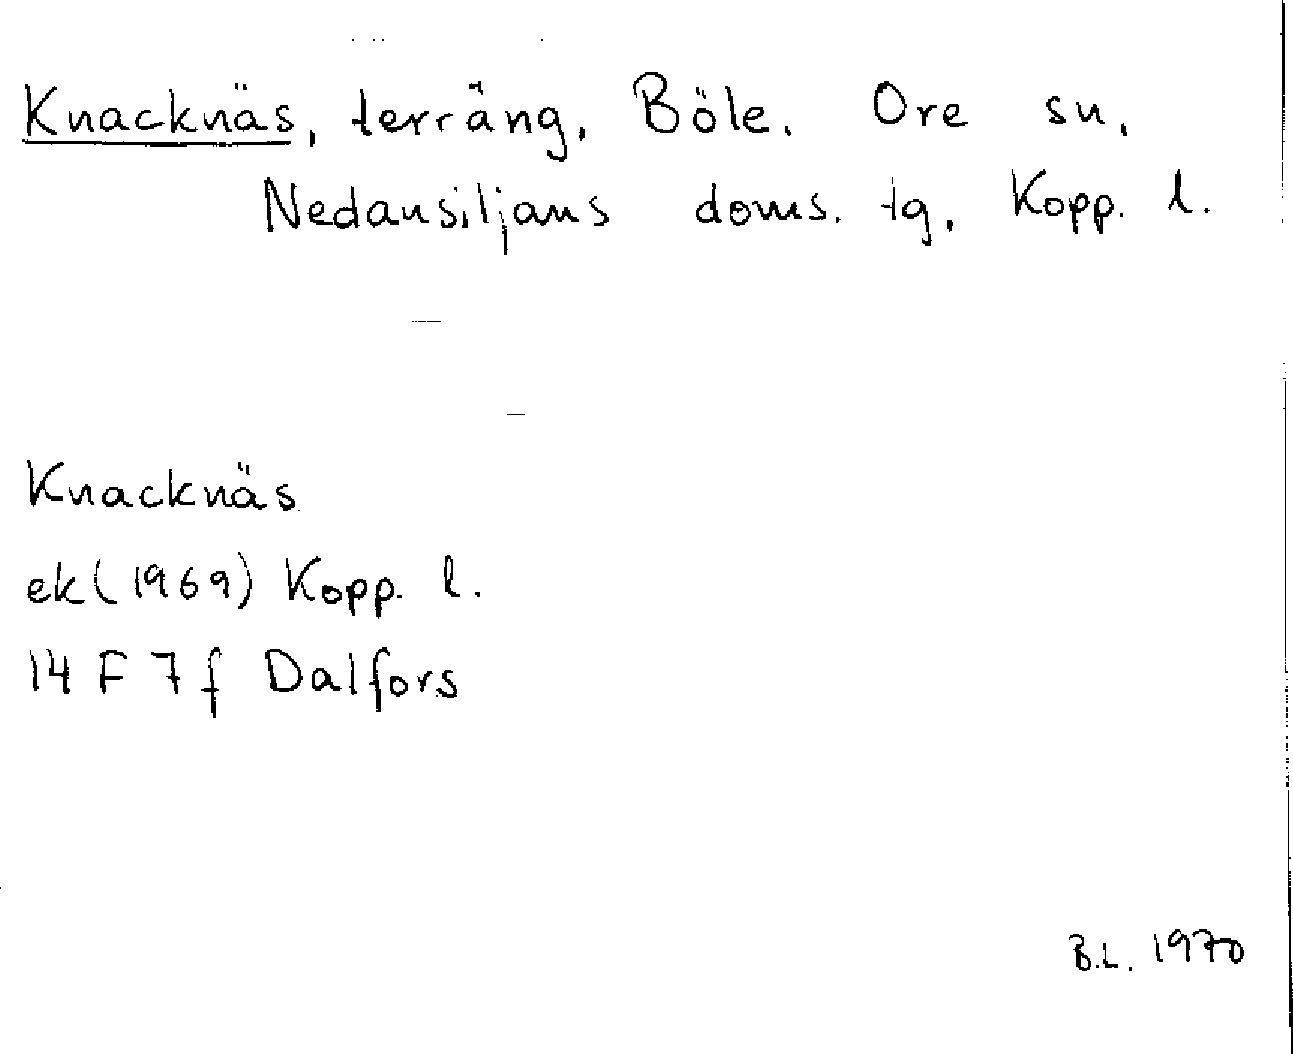 Knacknäs, terräng, Böle. Ore sn,
Nedansiljans doms. tg, Kopp. l.
Knacknäs
ek (1969) Kopp. l.
14 F 7 f Dalfors
B.L. 1970